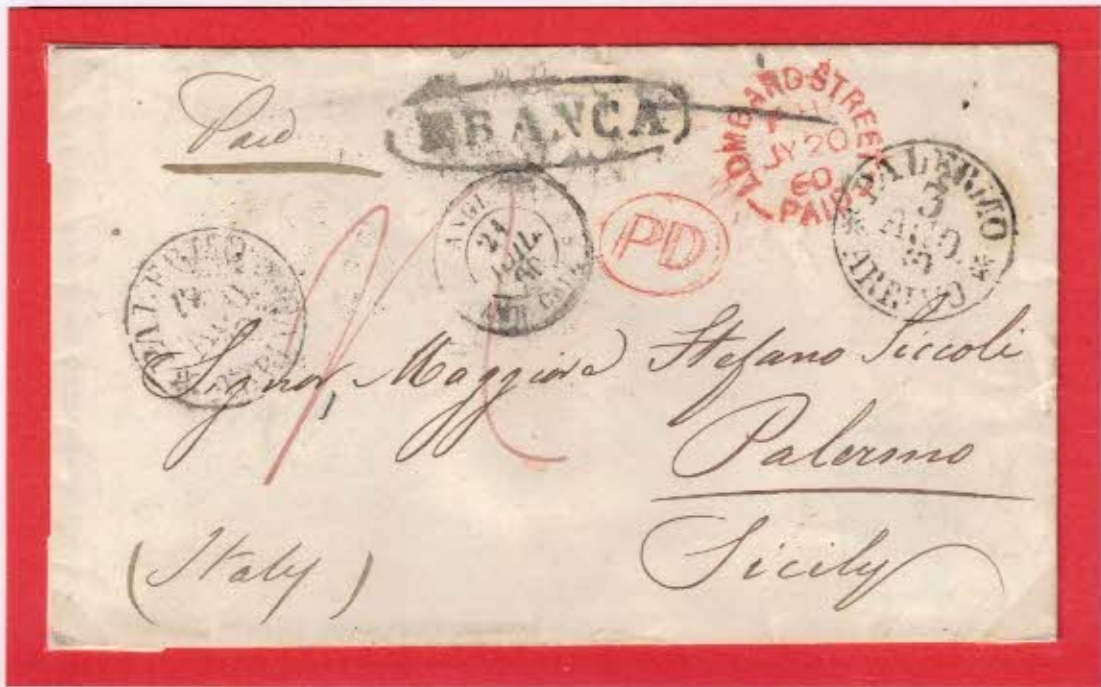 Paid
FRANCA
LOMBARD STREET
JY 20
60
PAID
PALERMO
3
AGO.
ARRIVO
PD
ANGL.
21
JUIL.
60
PALERMO
Signor Maggiore Stefano Siccoli
Palermo
(Italy)
Sicily